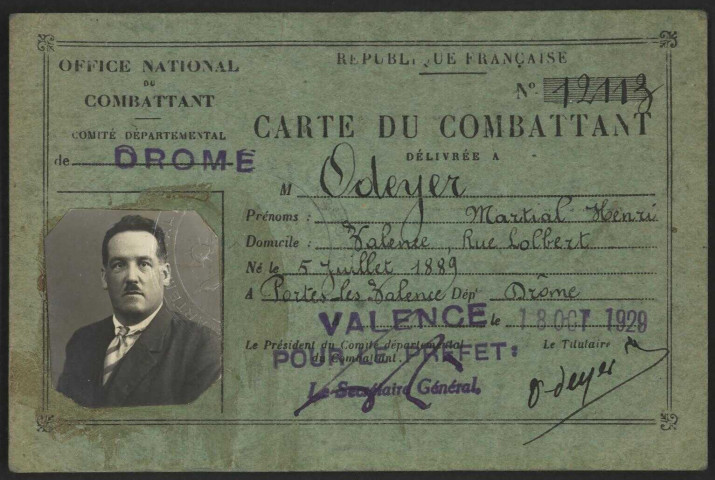 OFFICE NATIONAL
DU
COMBATTANT
COMITÉ DÉPARTEMENTAL
de DROME
RÉPUBLIQUE FRANÇAISE
No 12113
CARTE DU COMBATTANT
DÉLIVRÉE A
M Odeyer
Prénoms : Martial Henri
Domicile : Valence, Rue Colbert
Né le 5 Juillet 1889
A Portes les Valence Dépt Drôme
VALENCE le 18 OCT 1929
Le Président du Comité départemental
du Combattant.
Le Titulaire
POUR LE PREFET:
Le Secrétaire Général.
Odeyer